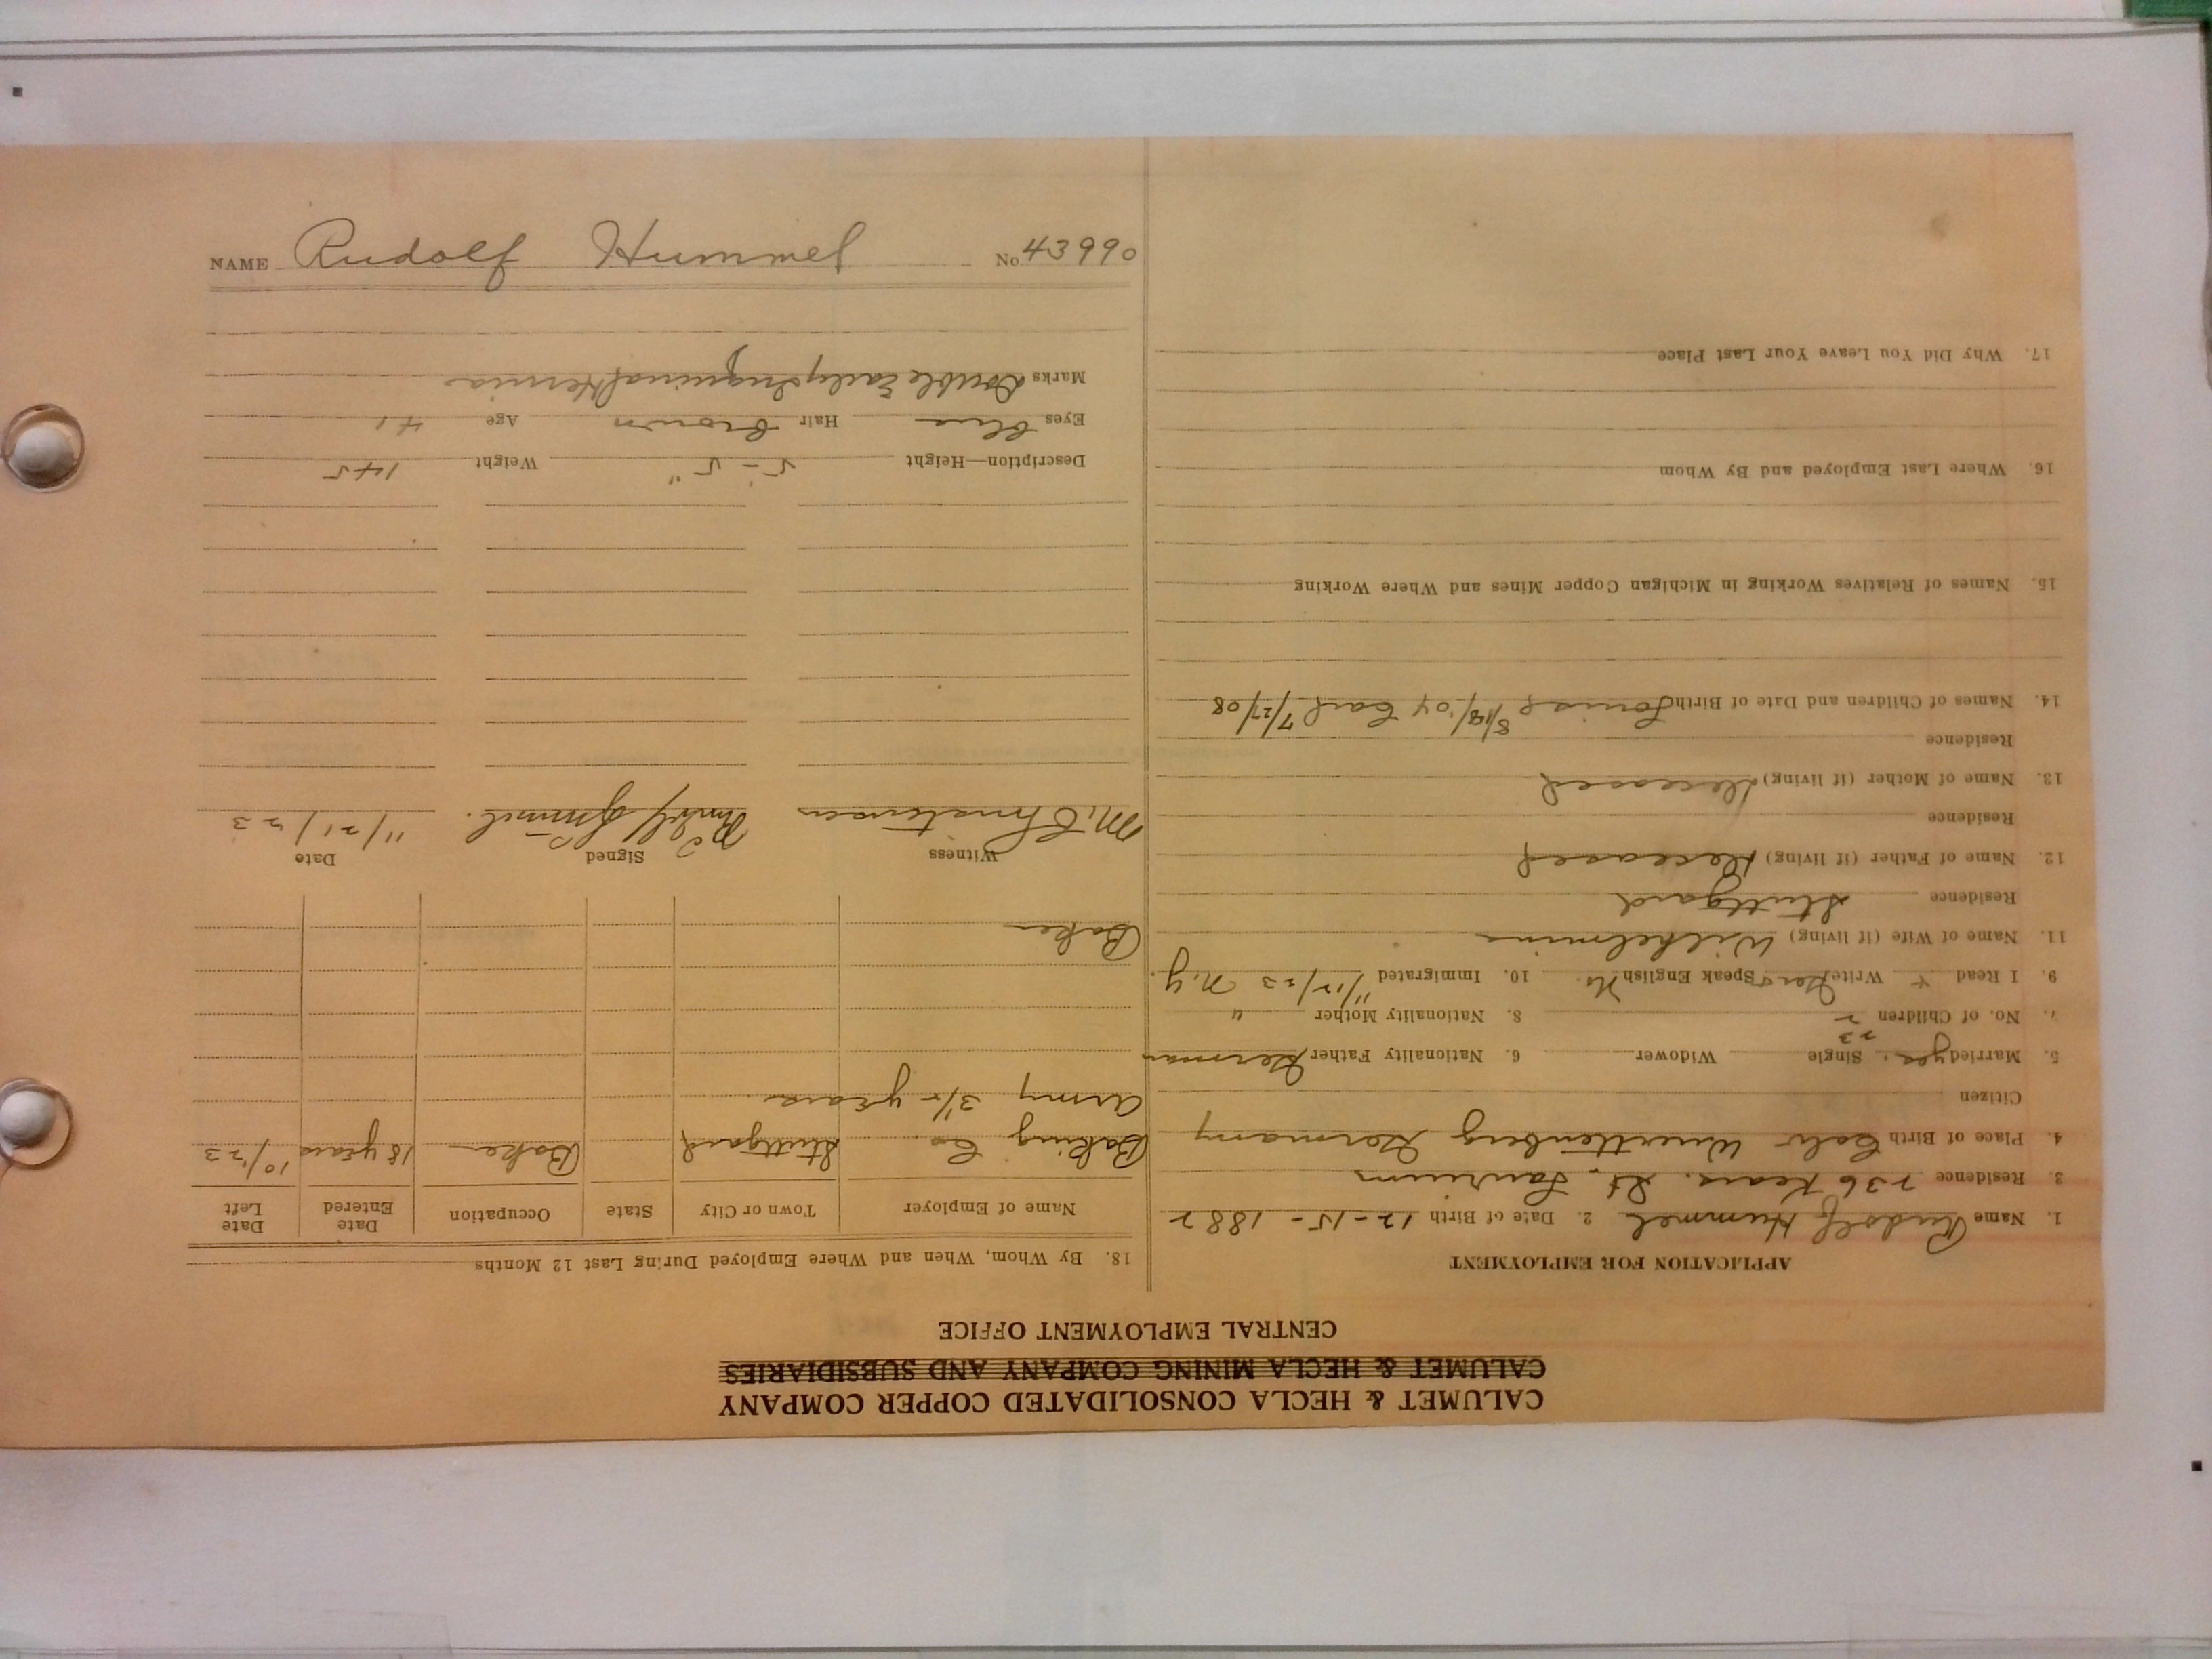 CALUMET & HECLA CONSOLIDATED COPPER COMPANY
CALUMET & HECLA MINING COMPANY AND SUBSIDIARIES
CENTRAL EMPLOYMENT OFFICE
APPLICATION FOR EMPLOYMENT
1. Name Rudolf Hummel 2. Date of Birth 12-15-1882
3. Residence 236 Kears. St. Laurium
4. Place of Birth Calw Wurttenberg Germany
Citizen
5. Married yes. 23 Single Widower 6. Nationality Father German
7. No. of Children 2 8. Nationality Mother "
9. I Read + Write Ger Speak English No 10. Immigrated 11/12/23 N.Y
11. Name of Wife (if living) Wilhelmina
Residence Stuttgard
12. Name of Father (if living) Deceased
Residence
13. Name of Mother (if living) Deceased
Residence
14. Names of Children and Date of Birth Louise 8/18/04 Carl 7/27/08
15. Names of Relatives Working in Michigan Copper Mines and Where Working
16. Where Last Employed and By Whom
17. Why Did You Leave Your Last Place
18. By Whom, When and Where Employed During Last 12 Months
Name of Employer Town or City State Occupation Date Entered Date Left
Baking Co. Stuttgard Baker 18 years 10/23
Army 3 1/2 years.
Baker
Witness Signed Date
M. Christensen Rudolf Hummel. 11/21/23
Description—Height 5'-5" Weight 145
Eyes Blue Hair Brown Age 41
Marks Double Early Inguinal Hernia
NAME Rudolf Hummel No 43990